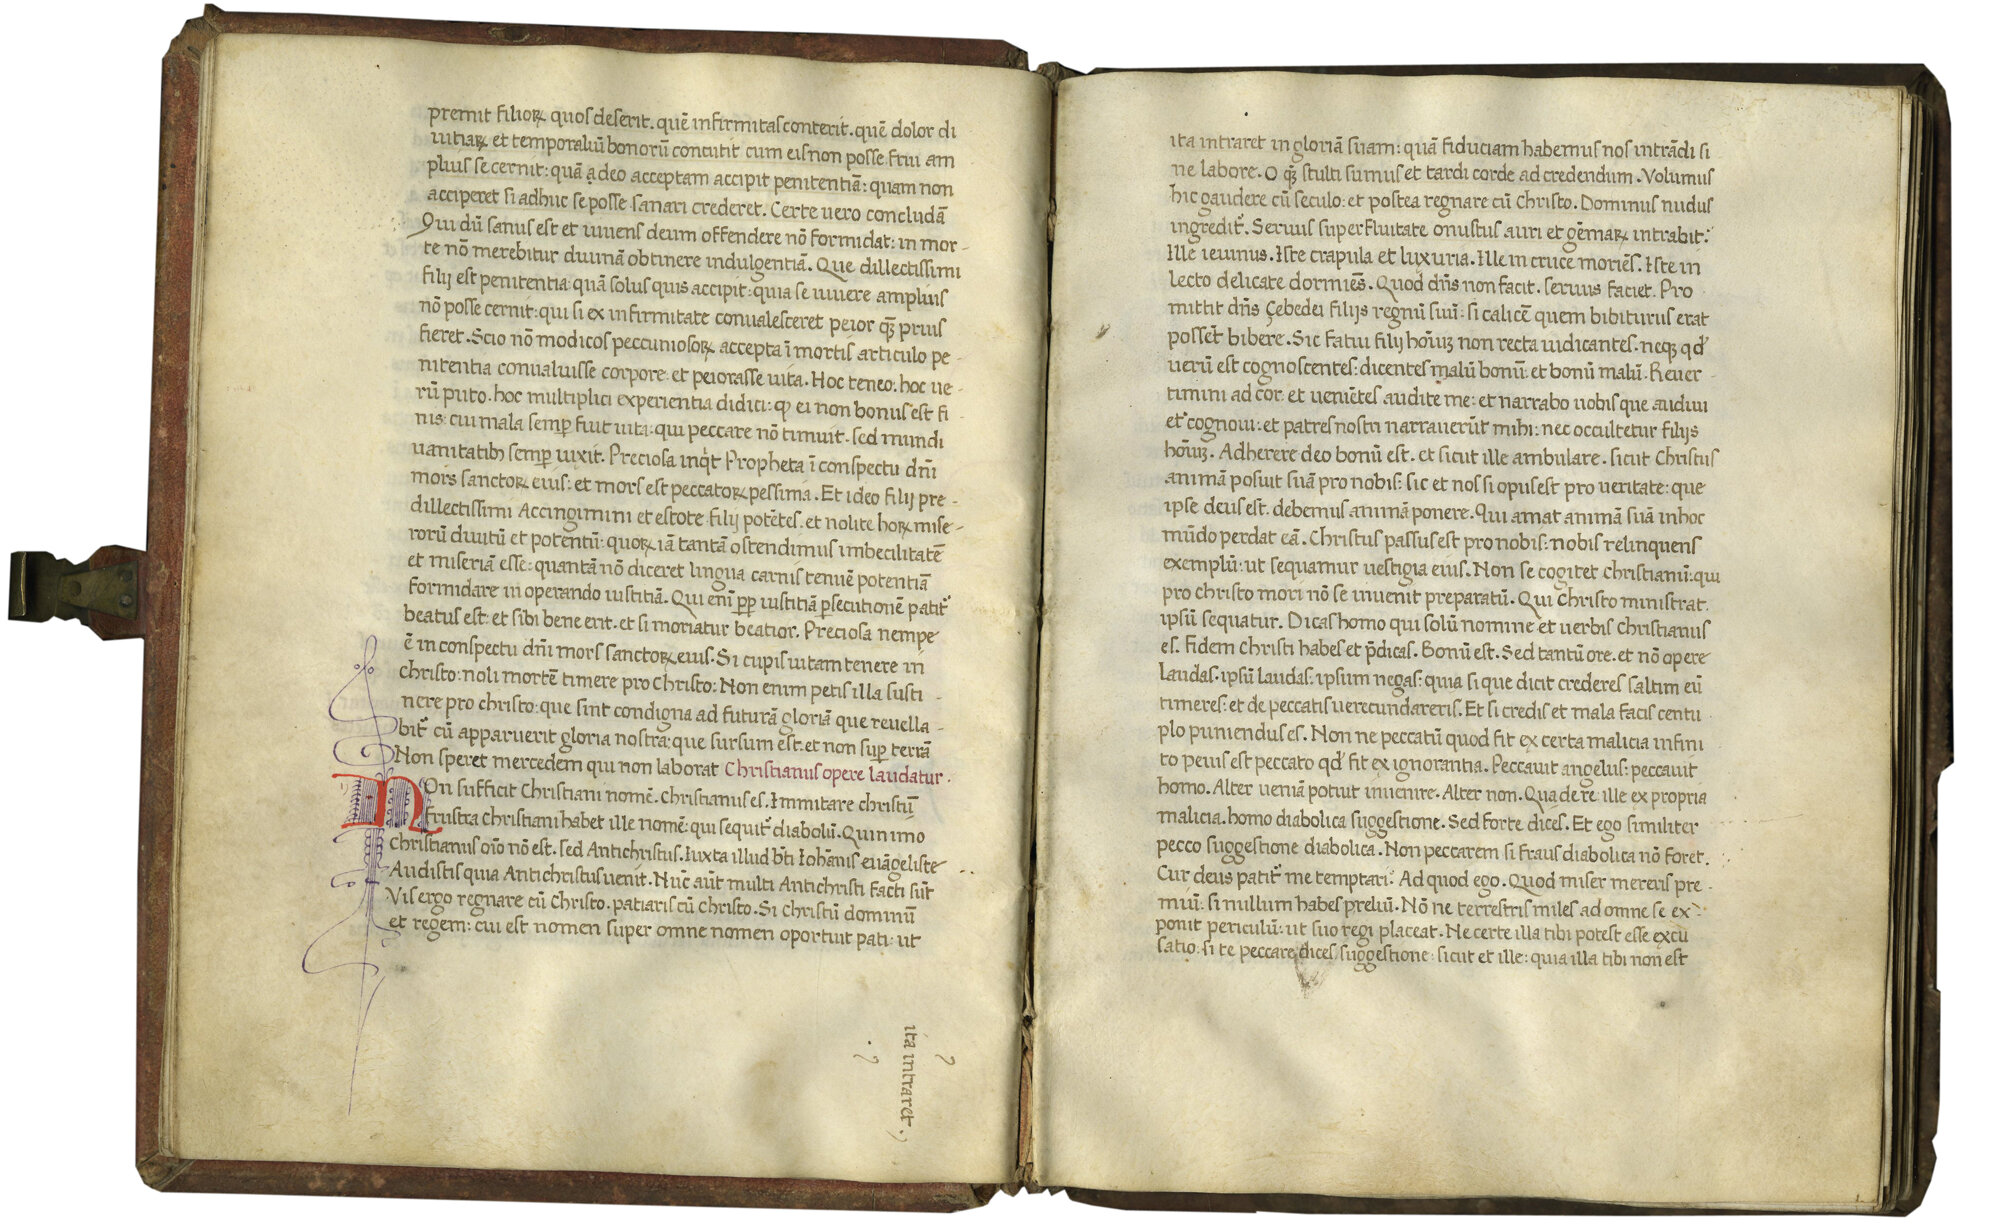 premit filioꝝ quos deserit. quē infirmitas conterit. quē dolor di
uitiaꝝ et temporaliū bonorū concutit cum eis non posse frui am
plius se cernit: quā a deo acceptam accipit penitentiā: quam non
acciperet si adhuc se posse sanari crederet. Certe uero concludā
Qui dū sanus est et uiuens deum offendere nō formidat: in mor-
te nō merebitur diuinā obtinere indulgentiā. Que dillectissimi
filij est penitentia: quā solus quis accipit: quia se uiuere amplius
nō posse cernit: qui si ex infirmitate conualesceret peior qꝫ prius
fieret. Scio nō modicos pecuniosoꝝ accepta ī mortis articulo pe-
nitentia conualuisse corpore: et peiorasse uita. Hoc teneo: hoc ue-
rū puto. hoc multiplici experientia didici: ꝙ ei non bonus est fi
nis: cui mala semꝑ fuit uita: qui peccare nō timuit. sed mundi
uanitatibꝫ semꝑ uixit. Preciosa inqͥt Propheta ī conspectu dn̄i
mors sanctoꝝ eius: et mors est peccatoꝝ pessima. Et ideo filij pre-
dillectissimi Accingimini et estote filij potētes. et nolite hoꝝ mise-
rorū diuitū et potentū: quoꝝ iā tantā ostendimus imbecilitatē
et miseriā esse: quantā nō diceret lingua carnis tenuē potentiā
formidare in operando iustitiā. Qui enī ꝓp iustitiā ꝑsecutionē patit᷑
beatus est: et sibi bene erit. et si moriatur beatior. Preciosa nempe
ē in conspectu dn̄i mors sanctoꝝ eius. Si cupis uitam tenere in
christo: noli mortē timere pro Christo: Non enim petis illa susti
nere pro christo: que sint condigna ad futurā gloriā que reuella-
bit᷑ cū apparuerit gloria nostra: que sursum est. et non suꝑ terrā
Non speret mercedem qui non laborat Christianus opere laudatur.
NOn sufficit Christiani nomē. christianus es. Immitare christū
frustra christiani habet ille nomē: qui sequit᷑ diabolū. Quin imo
christianus oīo nō est. sed Antichristus. Iuxta illud bt̄i Ioh̄anis euāgeliste
Audistis quia Antichristus uenit. Nūc aūt multi Antichristi facti sūt
Vis ergo regnare cū christo. patiaris cū christo. Si christū dominū
et regem: cui est nomen super omne nomen oportuit pati: ut
ita intraret.
ita intraret in gloriā suam: quā fiduciam habemus nos intrādi si
ne labore. O qꝫ stulti sumus et tardi corde ad credendum. Volumus
hic gaudere cū seculo: et postea regnare cū Christo. Dominus nudus
ingredit᷑. Seruus superfluitate onustus auri et gēmaꝝ intrabit:
Ille ieiunus. Iste crapula et luxuria. Ille in cruce moriēs. Iste in
lecto delicate dormiēs. Quod dn̄s non facit. seruus faciet. Pro
mittit dn̄s Çebedei filijs regnū suū: si calicē quem bibiturus erat
posset bibere. Sic fatui filij hoīuꝫ non recta iudicantes. neqꝫ qd̓
uerū est cognoscentes: dicentes malū bonū: et bonū malū. Reuer
timini ad cor. et ueniētes audite me: et narrabo uobis que audiui
et cognoui: et patres nostri narrauerūt mihi: nec occultetur filijs
hoīuꝫ. Adherere deo bonū est. et sicut ille ambulare. sicut Christus
animā posuit suā pro nobis: sic et nos si opus est pro ueritate: que
ipse deus est. debemus animā ponere. Qui amat animā suā in hoc
mūdo perdat eā. Christus passus est pro nobis: nobis relinquens
exemplū: ut sequamur uestigia eius. Non se cogitet christianū: qui
pro christo mori nō se inuenit preparatū. Qui christo ministrat.
ipsū sequatur. Dicas homo qui solū nomine et uerbis christianus
es. Fidem christi habes et p̄dicas. Bonū est. Sed tantū ore. et nō opere
laudas. ipsū laudas: ipsum negas: quia si que dicit crederes saltim eū
timeres: et de peccatis uerecundareris. Et si credis et mala facis centu
plo puniendus es. Non ne peccatū quod fit ex certa malicia infini
to peius est peccato qd̓ fit ex ignorantia. Peccauit angelus: peccauit
homo. Alter ueniā potuit inuenire. Alter non. Qua de re: ille ex propria
malicia. homo diabolica suggestione. Sed forte dices. Et ego similiter
pecco suggestione diabolica. Non peccarem si fraus diabolica nō foret.
Cur deus patit᷑ me temptari: Ad quod ego. Quod miser mereris pre-
miū: si nullum habes preliū. Nō ne terrestris miles ad omne se ex-
ponit periculū: ut suo regi placeat. Ne certe illa tibi potest esse excu
satio: si te peccare dices suggestione: sicut et ille: quia illa tibi non est